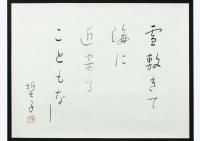 雪敷きて
海に
近寄る
こともなし
哲子